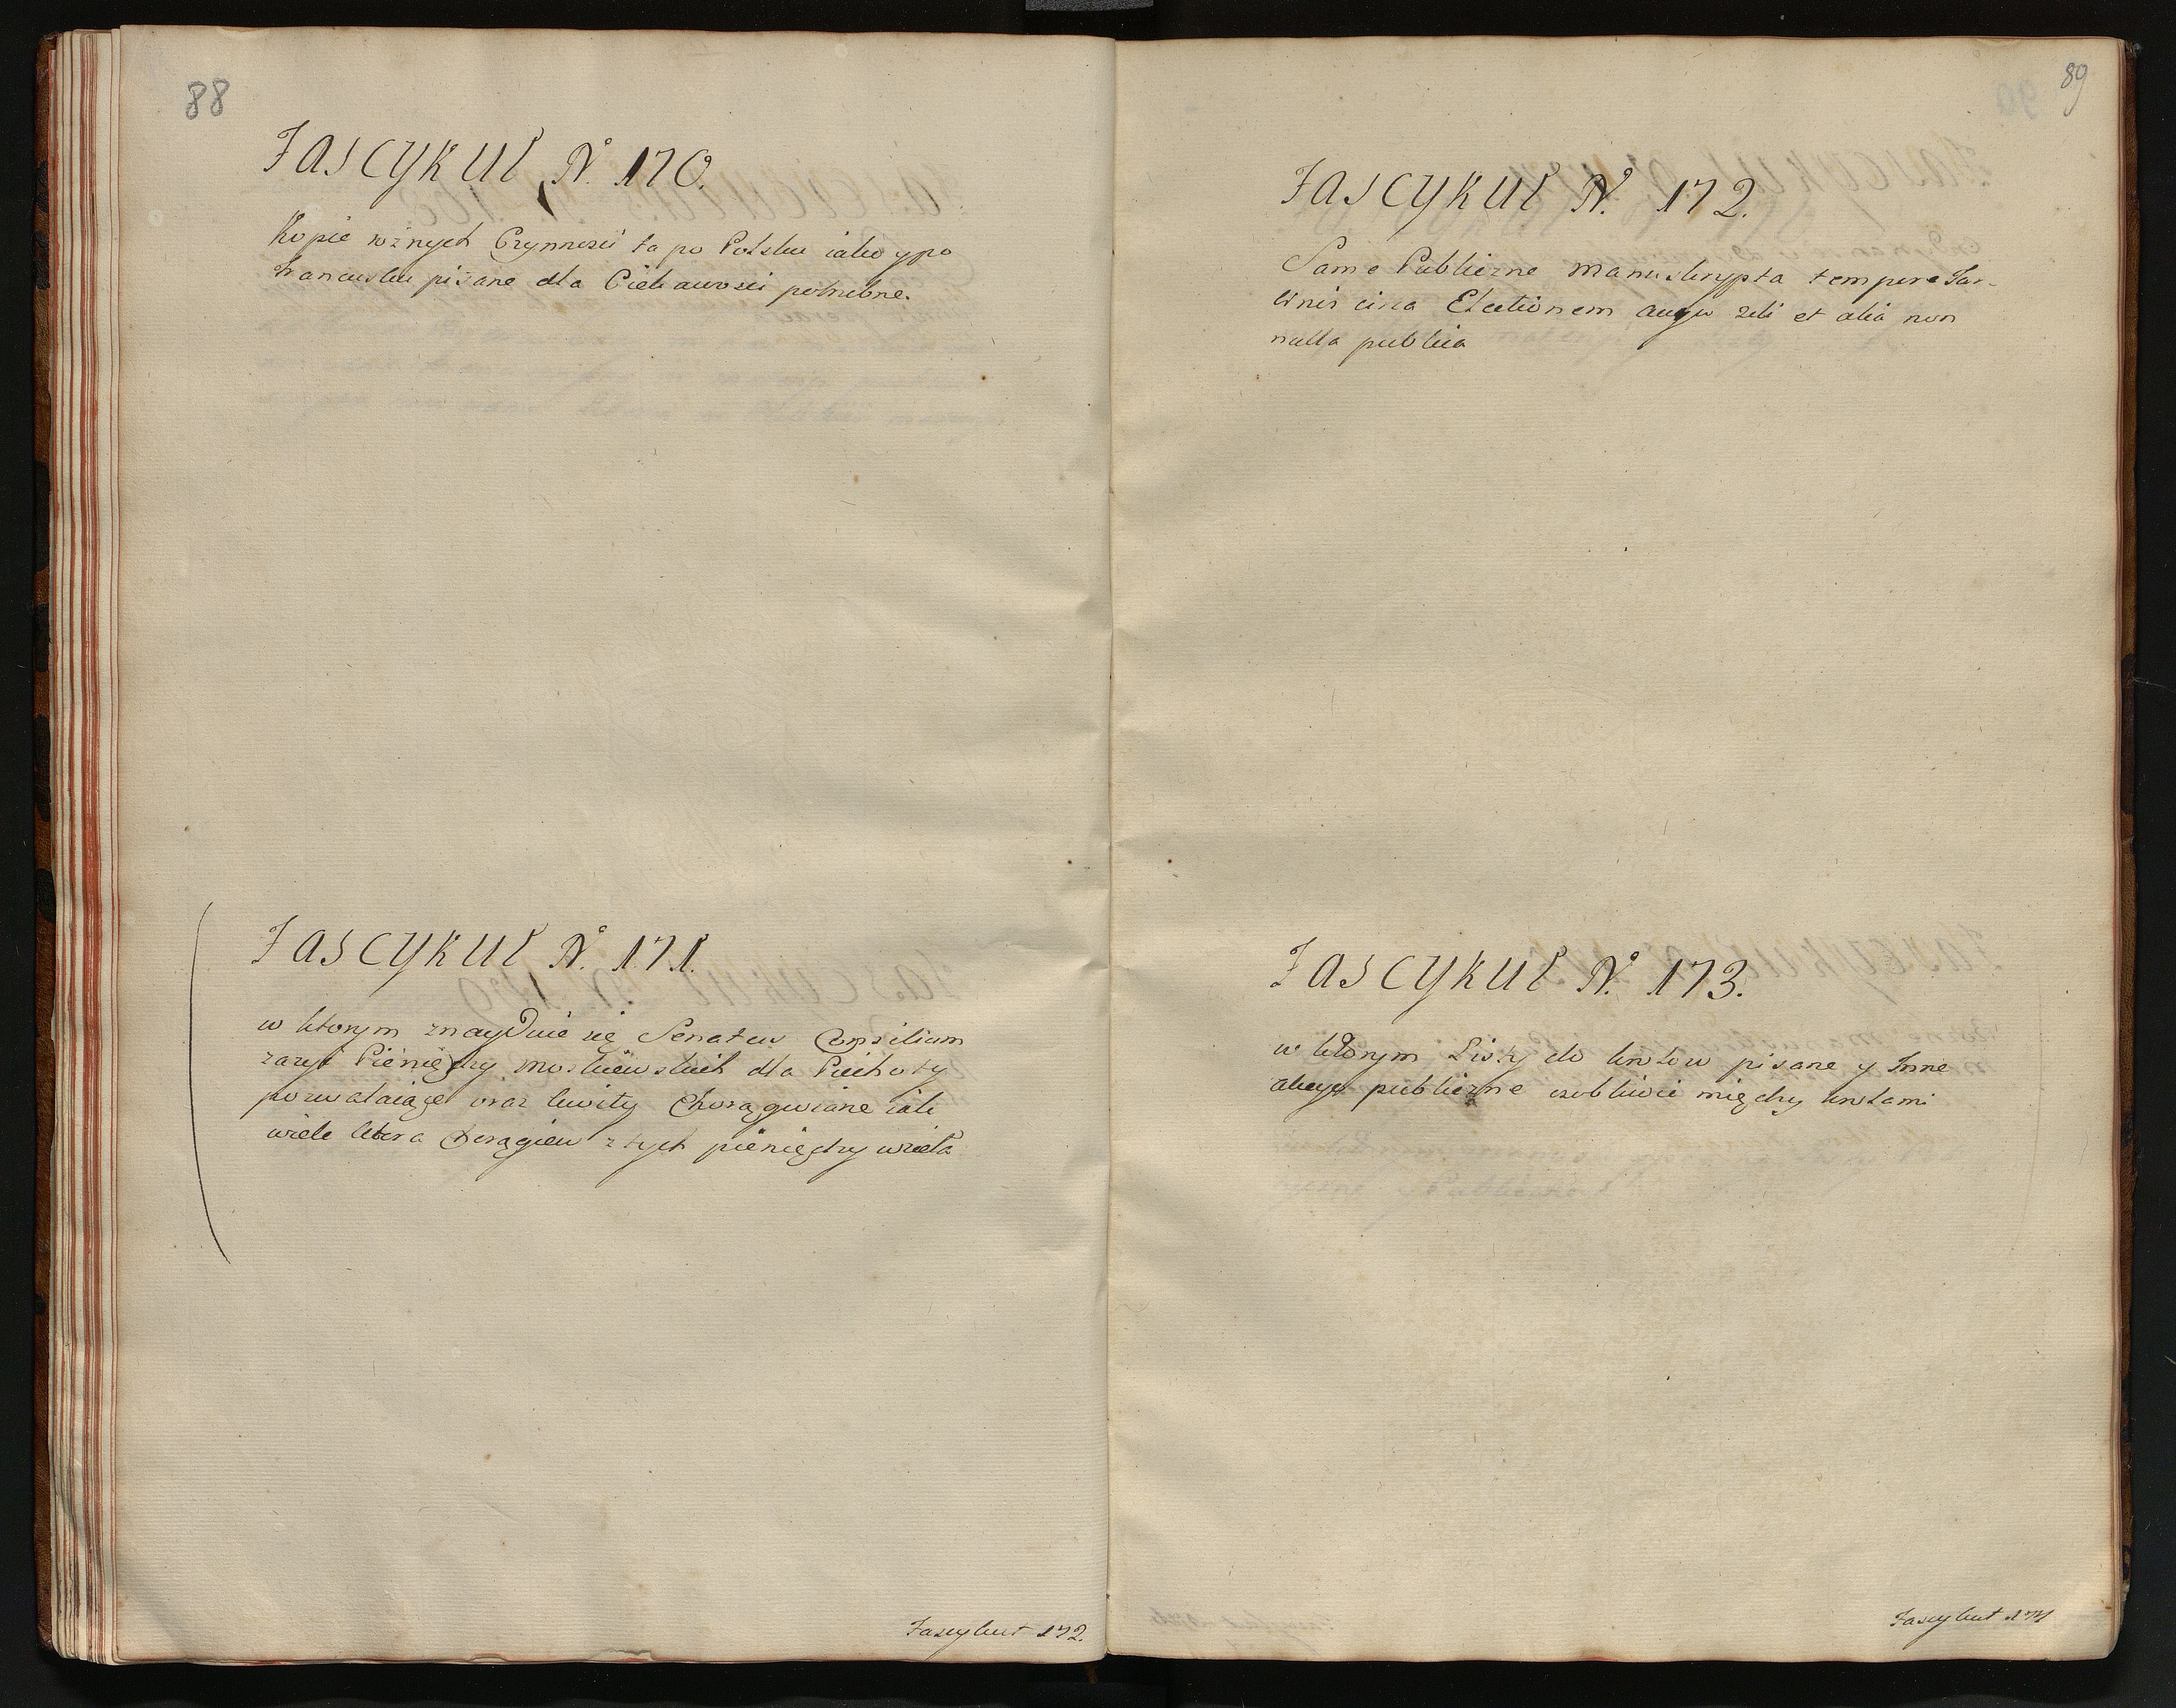 88
Fascykuł N.º 170.
Kopie rożnych Czynnosci ta po Polsku iako y po
francusku pisane dla Ciekawosci potrzebne.
Fascykuł N.º 171.
w ktorym znayduie się Senatus Consilium
zazyć Pieniędzy Moskiewskich dla Piechoty
pozwalaiące oraz kwity Chorągwiane iak
wiele ktora Chorągiew z tych pieniędzy wzieła
Fascykuł 172.
89
Fascykuł N.º 172.
Same Publiczne Manuskrypta tempore
circa Electionem Augu 2di et alia non
nulla publica
Fascykuł N.º 173.
w ktorym Listy do krolow pisane y Inne
akcye publiczne osobliwie między krolami
Fascykuł 174